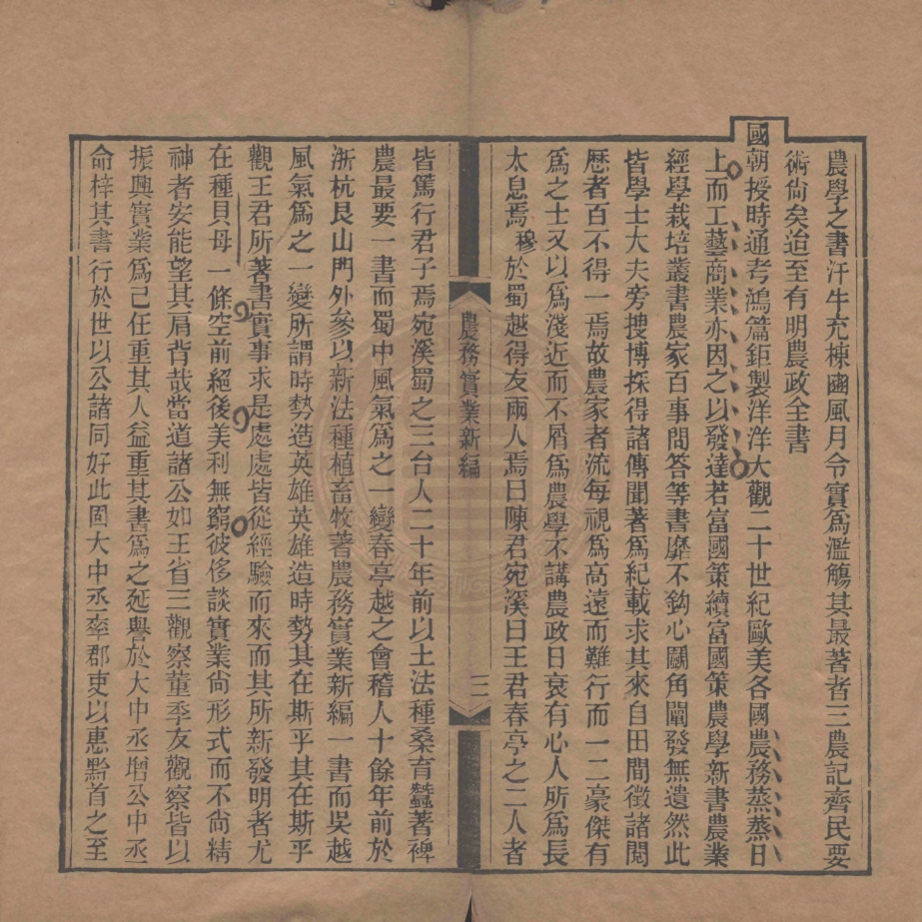 農學之書汗牛充棟豳風月令實爲濫觴其最著者三農記齊民要
術尙矣造至有明農政全書
國朝授時通考鴻篇鉅製洋洋大觀二十世紀歐美各國農務蒸蒸日
上而工藝商業亦因之以發達若富國策續富國策農學新書農業
經學栽培叢書農家百事問答等書靡不鈎心鬭角闡發無遺然此
皆學士大夫旁搜博採得諸傳聞著爲紀載求其來自田間徵諸閱
歷者百不得一焉故農家者流每視爲高遠而難行而一二豪傑有
爲之士又以爲淺近而不屑爲農學不講農政日衰有心人所爲長
太息焉穆於蜀越得友兩人焉曰陳君宛溪曰王君春亭之二人者
農務實業新編
二
皆篤行君子焉宛溪蜀之三台人二十年前以土法種桑育蠶著裨
農最要一書而蜀中風氣爲之一變春亭越之會稽人十餘年前於
浙杭艮山門外參以新法種植畜牧著農務實業新編一書而吳越
風氣爲之一變所謂時勢造英雄英雄造時勢其在斯乎其在斯乎
觀王君所著書實事求是處處皆從經驗而來而其所新發明者尤
在種貝母一條空前絕後美利無窮彼侈談實業尙形式而不尙精
神者安能望其肩背哉當道諸公如王省三觀察董季友觀察皆以
振興實業爲己任重其人益重其書爲之延譽於大中丞增公中丞
命梓其書行於世以公諸同好此固大中丞率郡吏以惠黔首之至